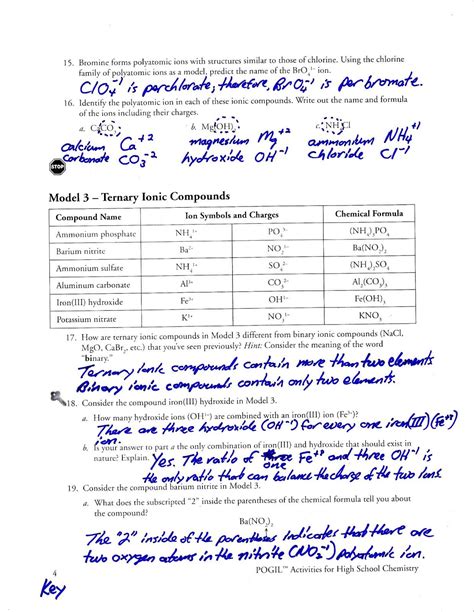 15. Bromine forms polyatomic ions with structures similar to those of chlorine. Using the chlorine
family of polyatomic ions as a model, predict the name of the BrO₄¹⁻ ion.
ClO₄⁻ is perchlorate; therefore, BrO₄⁻ is perbromate.
16. Identify the polyatomic ion in each of these ionic compounds. Write out the name and formula
of the ions including their charges.
a. CaCO₃ b. Mg(OH)₂ c. NH₄Cl
calcium Ca⁺² magnesium Mg⁺² ammonium NH₄⁺¹
carbonate CO₃⁻² hydroxide OH⁻¹ chloride Cl⁻¹
STOP
Model 3 – Ternary Ionic Compounds
Compound Name Ion Symbols and Charges Chemical Formula
Ammonium phosphate NH₄¹⁺ PO₄³⁻ (NH₄)₃PO₄
Barium nitrite Ba²⁺ NO₂¹⁻ Ba(NO₂)₂
Ammonium sulfate NH₄¹⁺ SO₄²⁻ (NH₄)₂SO₄
Aluminum carbonate Al³⁺ CO₃²⁻ Al₂(CO₃)₃
Iron(III) hydroxide Fe³⁺ OH¹⁻ Fe(OH)₃
Potassium nitrate K¹⁺ NO₃¹⁻ KNO₃
17. How are ternary ionic compounds in Model 3 different from binary ionic compounds (NaCl,
MgO, CaBr₂, etc.) that you've seen previously? Hint: Consider the meaning of the word
"binary."
Ternary ionic compounds contain more than two elements.
Binary ionic compounds contain only two elements.
18. Consider the compound iron(III) hydroxide in Model 3.
a. How many hydroxide ions (OH¹⁻) are combined with an iron(III) ion (Fe³⁺)?
There are three hydroxide (OH⁻) for every one iron(III) (Fe⁺³)
ion.
b. Is your answer to part a the only combination of iron(III) and hydroxide that should exist in
nature? Explain. Yes. The ratio of one Fe⁺³ and three OH⁻¹ is
the only ratio that can balance the charge of the two ions.
19. Consider the compound barium nitrite in Model 3.
a. What does the subscripted "2" inside the parentheses of the chemical formula tell you about
the compound?
Ba(NO₂)₂
The "2" inside of the parentheses indicates that there are
two oxygen atoms in the nitrite (NO₂⁻¹) polyatomic ion.
4 POGIL™ Activities for High School Chemistry
Key